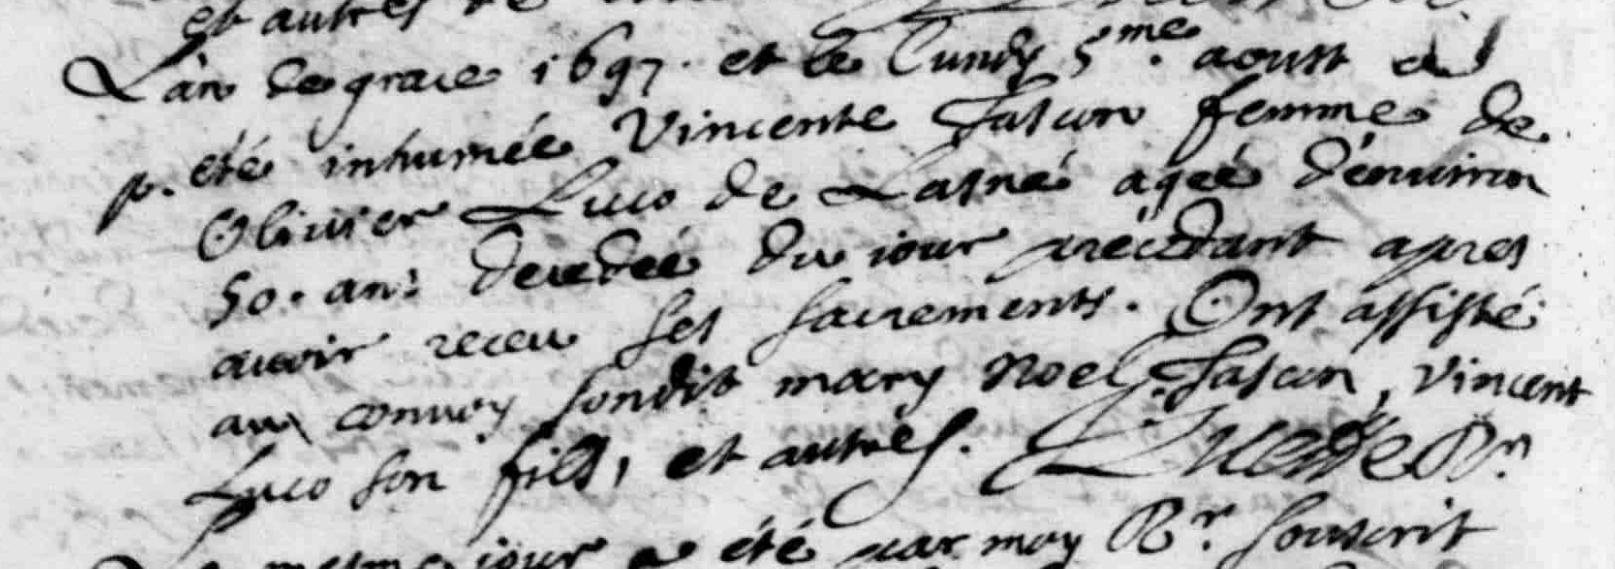 et autres
L'an de grace 1697. et le lundy 5me. aoust a
p. eté inhumée Vincente Jascun femme de
Olivier Luco de Lasné agée d'environ
50. ans decedée du iour précédant apres
avoir receu ses sacrements. Ont assisté
au convoy sondit mary Noel Jascun, Vincent
Luco son fils, et autres.
mesme iour a été par moy Rr. souscrit